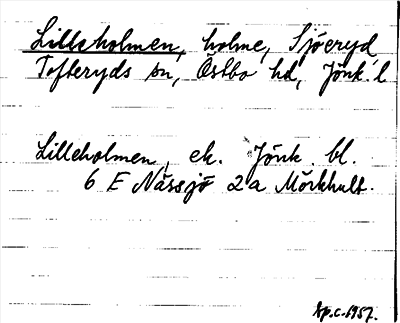 Lilleholmen, holme, Sjöeryd,
Tofteryds sn, Östbo hd, Jönk. l
Lilleholmen, ek. Jönk. bl.
6 E Nässjö 2a Mörkhult.
Ap.c. 1957.